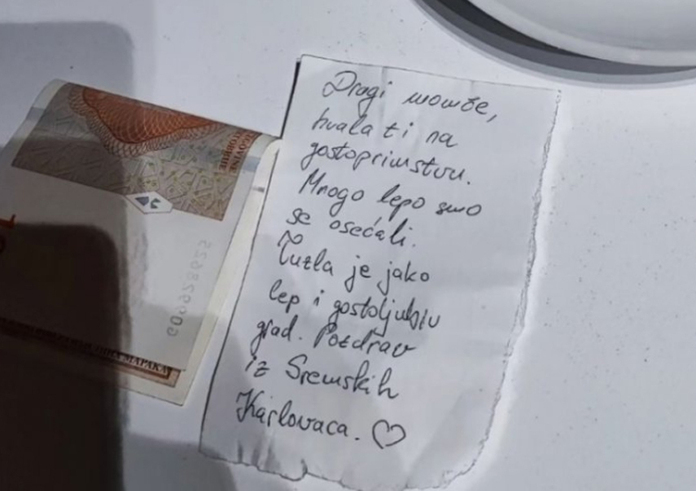 Dragi momče,
hvala ti na
gostoprimstvu.
Mnogo lepo smo
se osećali.
Tuzla je jako
lep i gostoljubiv
grad. Pozdrav
iz Sremskih
Karlovaca. ♡
G00928625